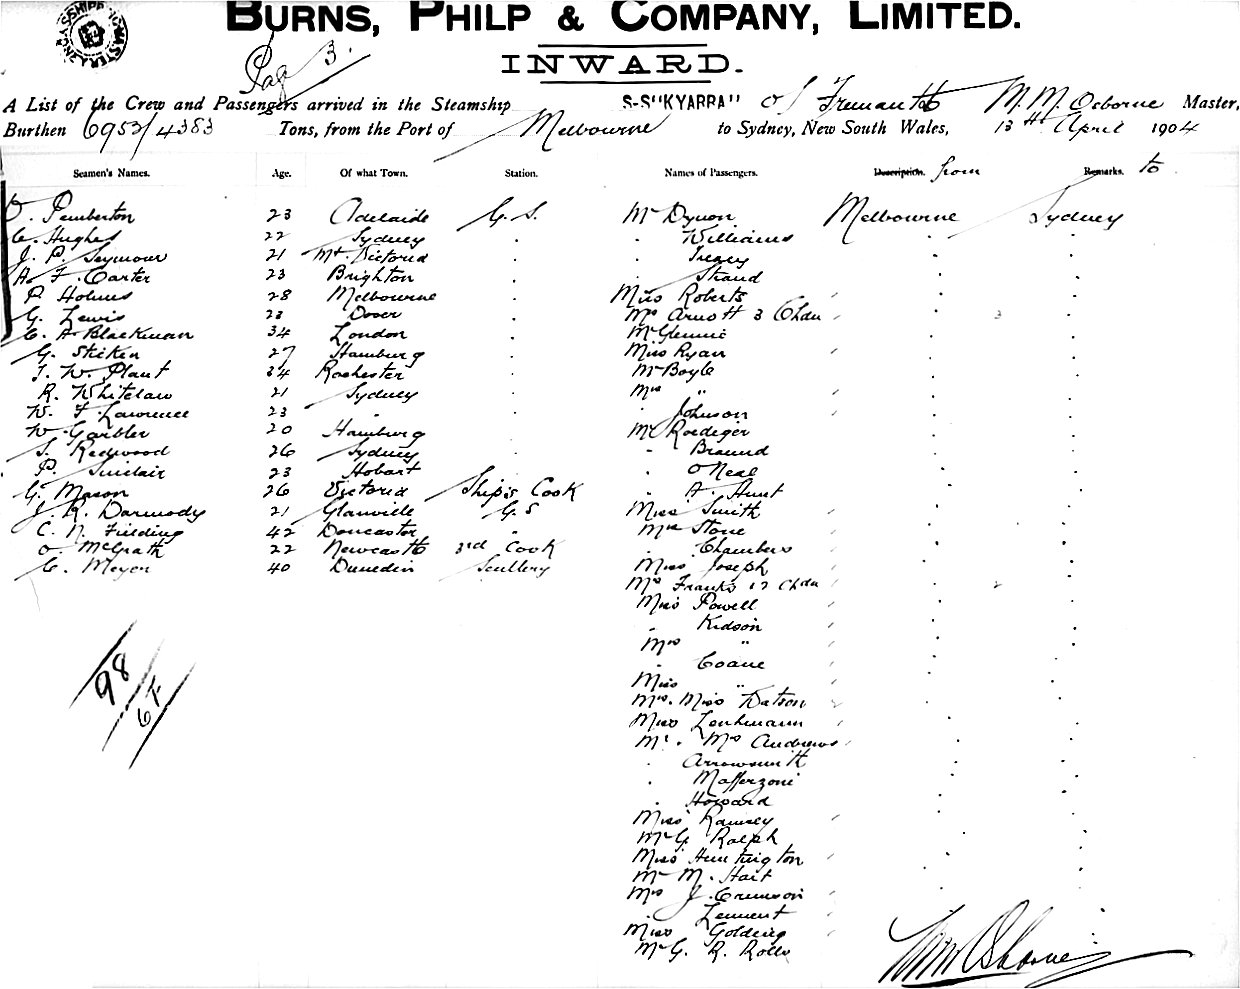 BURNS, PHILP & COMPANY, LIMITED.
Pag 3.
INWARD.
A List of the Crew and Passengers arrived in the Steamship S-S "KYARRA" of Fremantle M. M. Osborne Master,
Burthen 6953/4383 Tons, from the Port of Melbourne to Sydney, New South Wales, 13th April 1904
Seamen's Names. Age. Of what Town. Station. Names of Passengers. Description. from Remarks. to
O. Pemberton 23 Adelaide G. S. Mr Dynon Melbourne Sydney
C. Hughes 22 Sydney . . Williams . .
J. P. Seymour 21 Mt. Victoria . . Treacy . .
A. F. Carter 23 Brighton . . Strand . .
P. Holmes 28 Melbourne . Miss Roberts . .
G. Lewis 23 Dover . Mrs Arnott 3 Chdn 3 .
C. A. Blackman 34 London . Mr Glennie . .
G. Stricken 27 Hamburg . Miss Ryan . .
T. W. Plant 34 Rochester . Mr Boyle . .
R. Whitelaw 21 Sydney . Mrs " . .
W. F. Lawrence 23 " . . Johnson . .
W. Garbler 20 Hamburg . Mr Roediger . .
S. Redwood 26 Sydney . . Braund . .
P. Sinclair 23 Hobart . . O'Neal . .
G. Mason 26 Victoria Ship's Cook . A. Hunt . .
J. R. Darmody 21 Glanville G. S Miss Smith . .
C. N. Fielding 42 Doncaster " Mrs Stone . .
O. McGrath 22 Newcastle 3rd Cook . Chambers . .
C. Meyer 40 Dunedin Scullery Miss Joseph . .
Mrs Franks 2 Chdn 2 .
Miss Powell . .
. Kidson . .
Mrs " . .
. Coane . .
Miss " . .
Mrs. Miss Watson . .
Miss . .
Mr. Mrs Andrews . .
. Arrowsmith . .
. Mafferzoni . .
. Howard . .
Miss Ramsey . .
Mr G. Ralph . .
Miss Huntington . .
Mr M. Hait . .
Mrs J. Crimson . .
. Lement . .
Miss Golding
Mr G. R. Rolls
98
6 F
MM Osborne